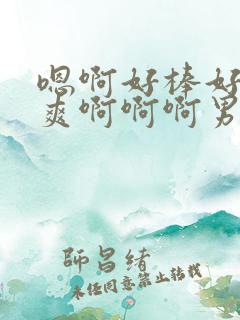 嗯啊好棒好
爽啊啊啊男
師昌緒
未经同意禁止转载